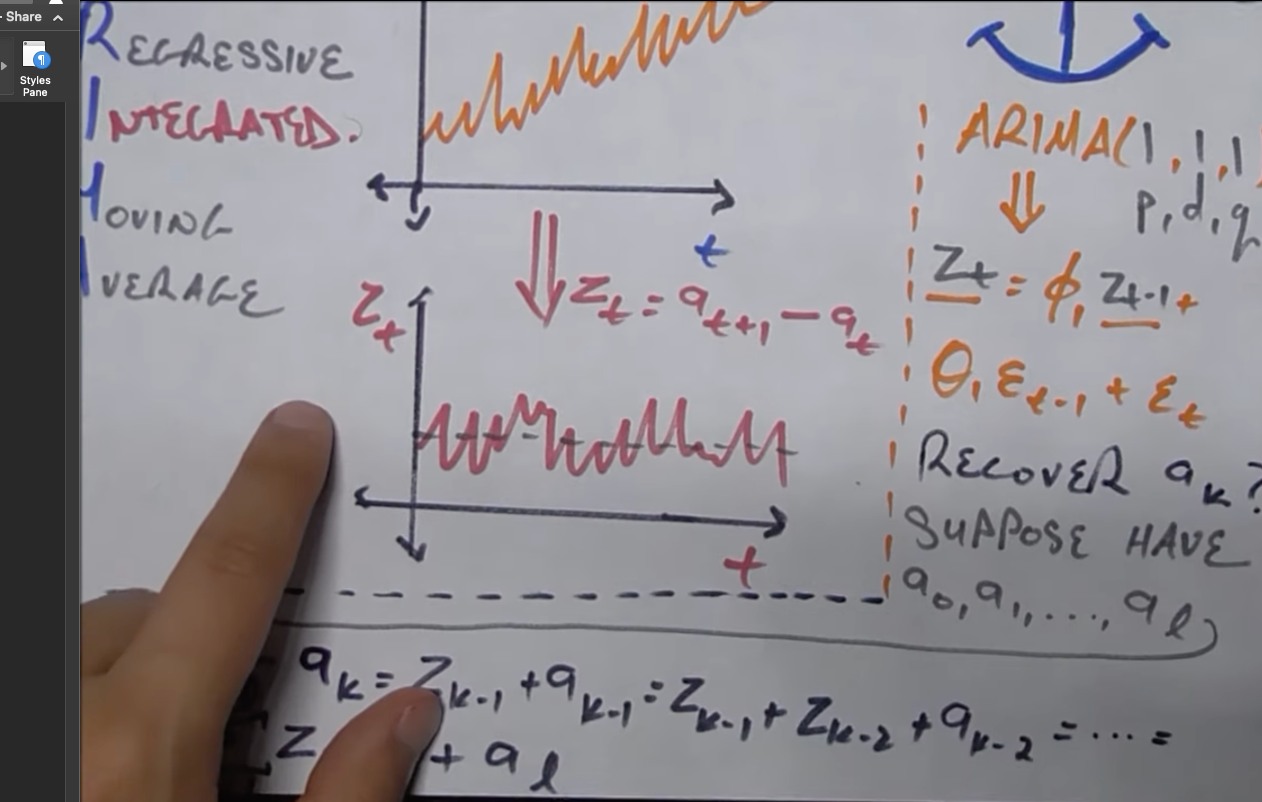 Share
Styles
Pane
REGRESSIVE
INTEGRATED.
MOVING
AVERAGE
t
Z_t = a_{t+1} - a_t
Z_t
t
ARIMA(1,1,1
p,d,q
Z_t = ϕ_1 Z_{t-1} +
θ_1 ε_{t-1} + ε_t
RECOVER a_k?
SUPPOSE HAVE
a_0, a_1, ..., a_l
a_k = Z_{k-1} + a_{k-1} = Z_{k-1} + Z_{k-2} + a_{k-2} = ... =
Z + a_l